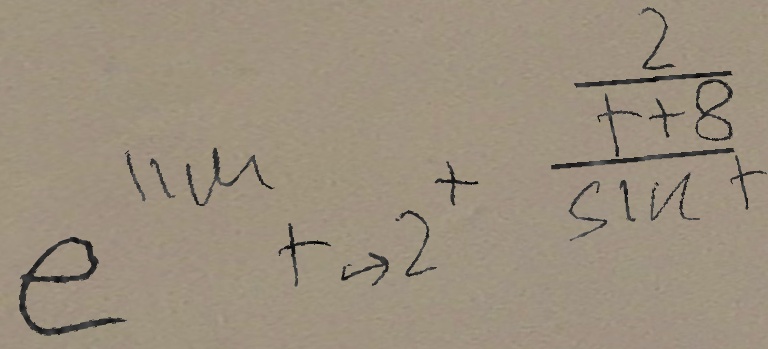 e^{\lim_{t \to 2^+} \frac{\frac{2}{t+8}}{\sin t}}